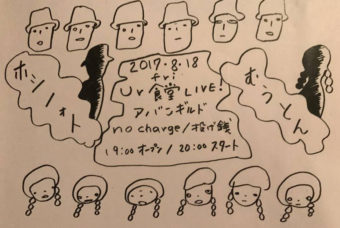 ホシノォト
2017・8・18
fri
Ur食堂 LIVE!
アバンギルド
no charge/投げ銭
19:00 オープン/20:00 スタート
むうとん